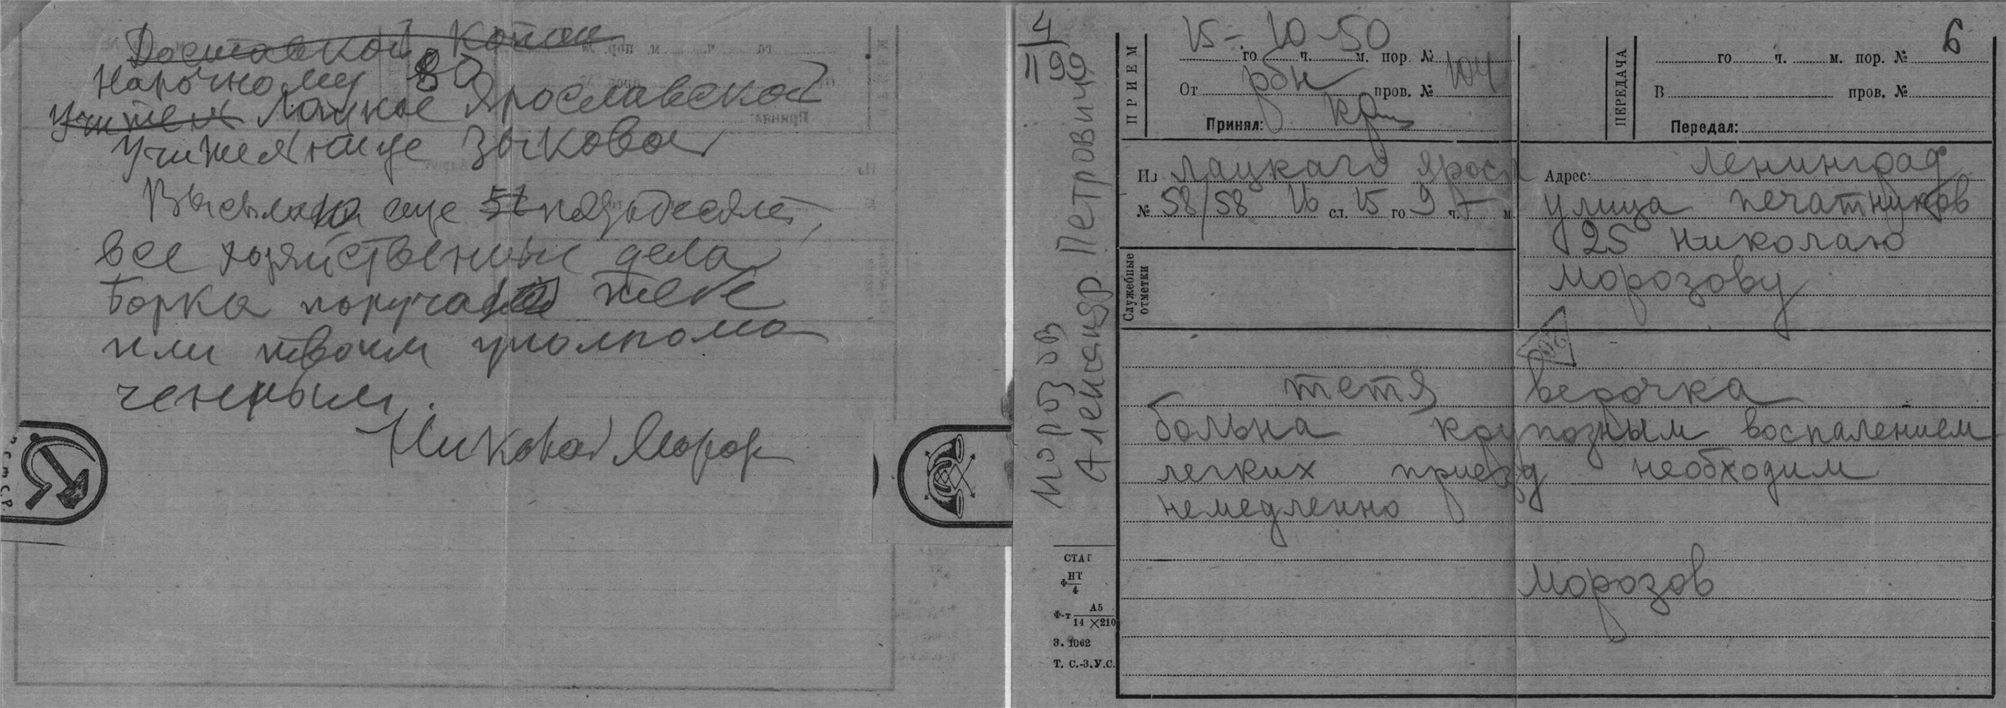 Доставкой Копии
Нарочному 80
Учител Лацкое Ярославской
Учительнице Зыковой
Высылаю еще 51 пятьдесят,
все хозяйственные дела
Борка поручаю тебе
или твоим уполномо
ченным.
Николай Мороз
4
1199
МОРОЗОВ
Александр Петрович
ПРИЕМ
15-10-50
го ч. м. пор. №
От рбн пров. № 104
Принял:
ПЕРЕДАЧА
6
го ч. м. пор. №
В пров. №
Передал:
Из лацкаго яросл
№ 58/58 16 сл. 15 го 9 ч. м.
Адрес: Ленинград
улица печатников
25 николаю
морозову
Служебные
отметки
тетя верочка
больна крупозным воспалением
легких приезд необходим
немедленно
морозов
НТ
4
Ф-т А5
14 ×210
З. 1062
Т. С.-З.У.С.